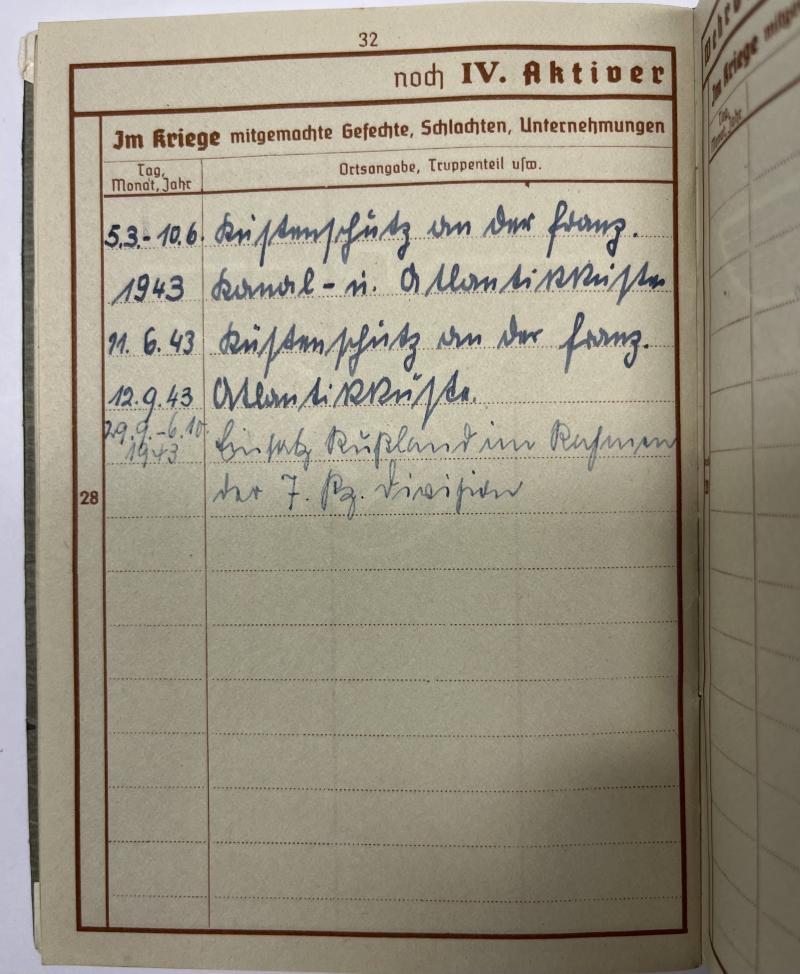 32
noch IV. Aktiver
Im Kriege mitgemachte Gefechte, Schlachten, Unternehmungen
Tag, Monat, Jahr
Ortsangabe, Truppenteil usw.
5.3.- 10.6. Küstenschutz an der franz.
1943 Kanal- u. Atlantikküste
11. 6. 43 Küstenschutz an der franz.
12.9.43 Atlantikküste.
29.9.-6.10. Einsatz Rußland im Rahmen
1943
der 7. Pz. Division
28
Im Kriege
Tag,
Monat, Jahr